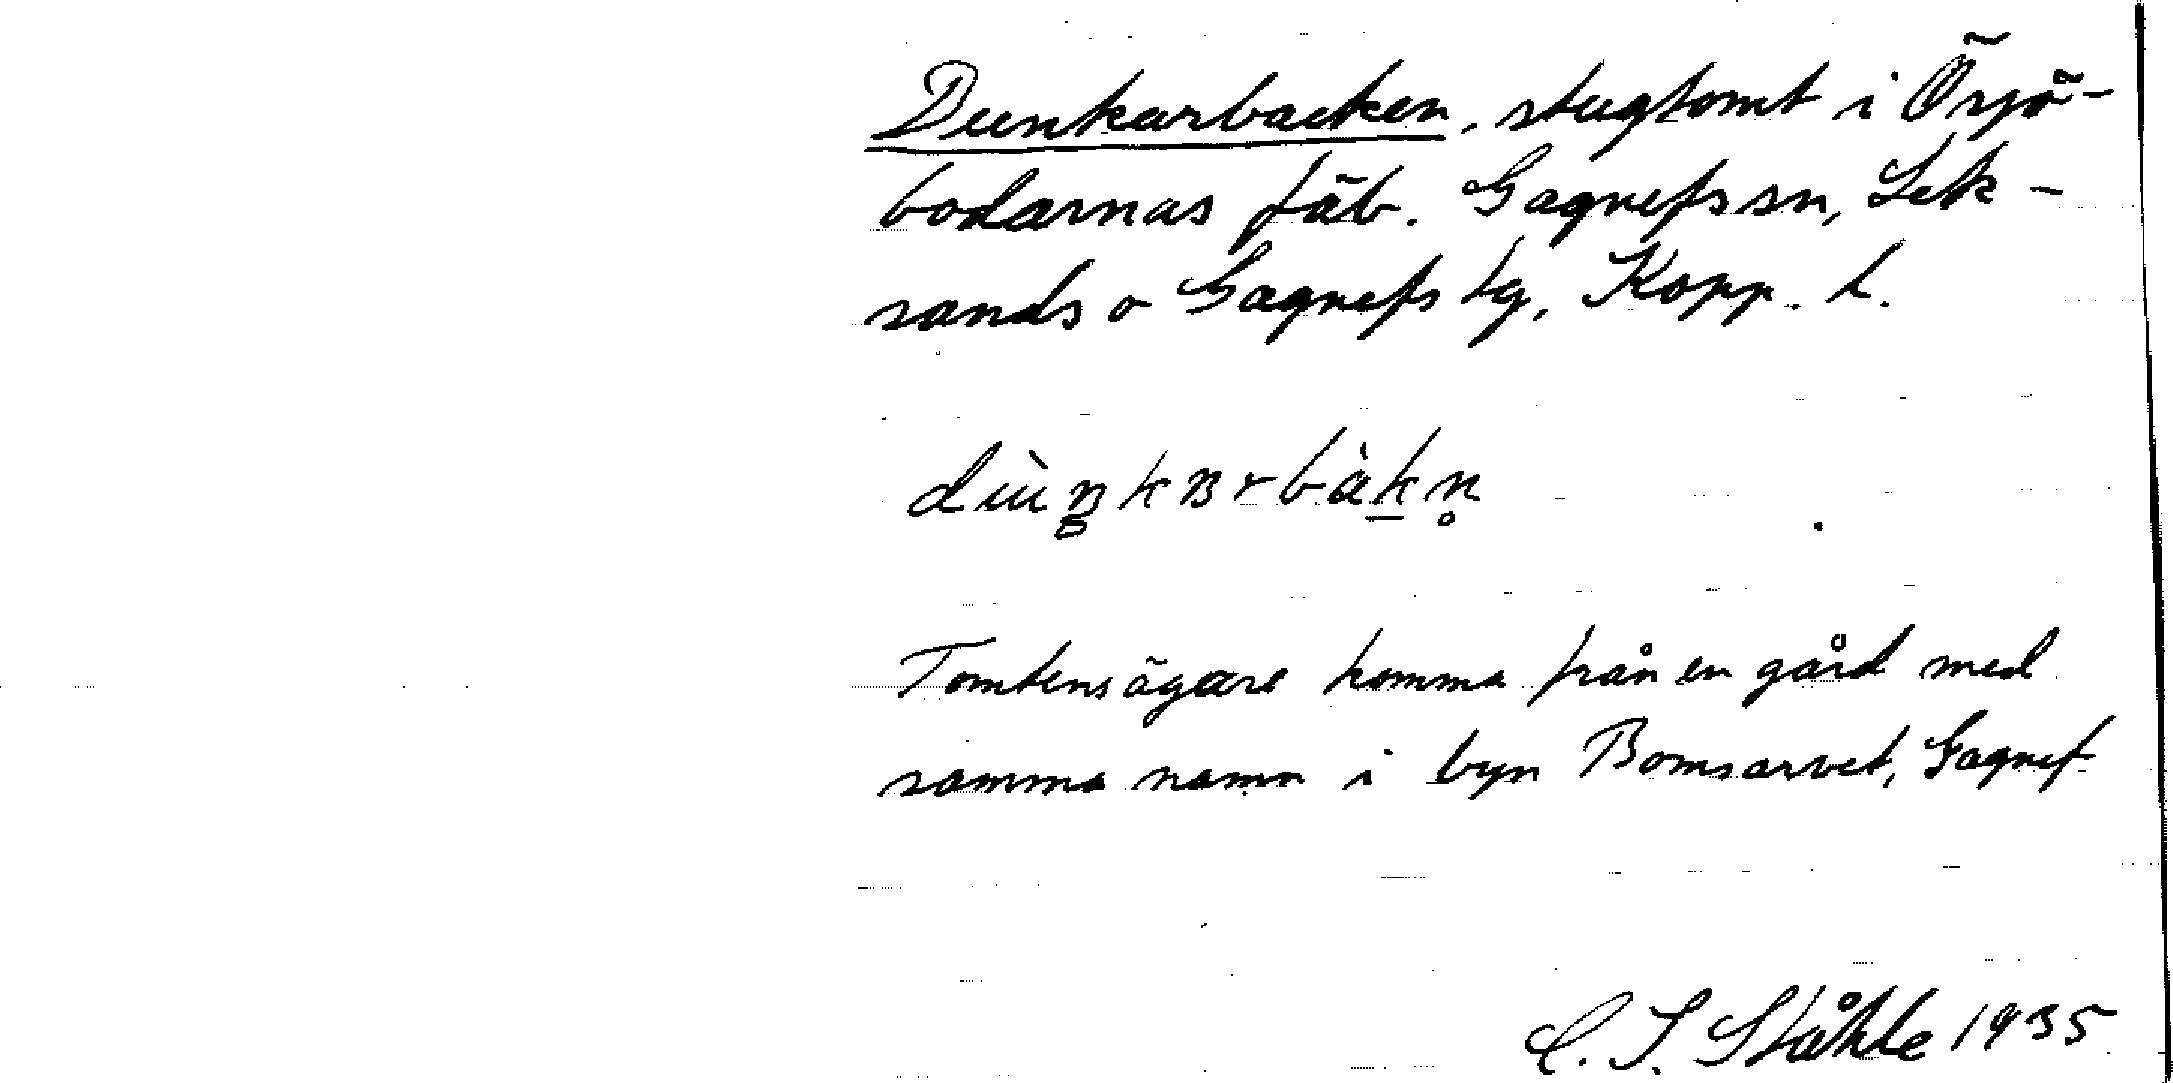 Dunkarbacken, stugtomt i Örjö-
bodarnas fäb. Gagnefs sn, Lek-
sands o Gagnefs tg, Kopp. l.
Tomtens ägare komma från en gård med
samma namn i byn Bomsarvet, Gagnef
C. I. Ståhle 1935